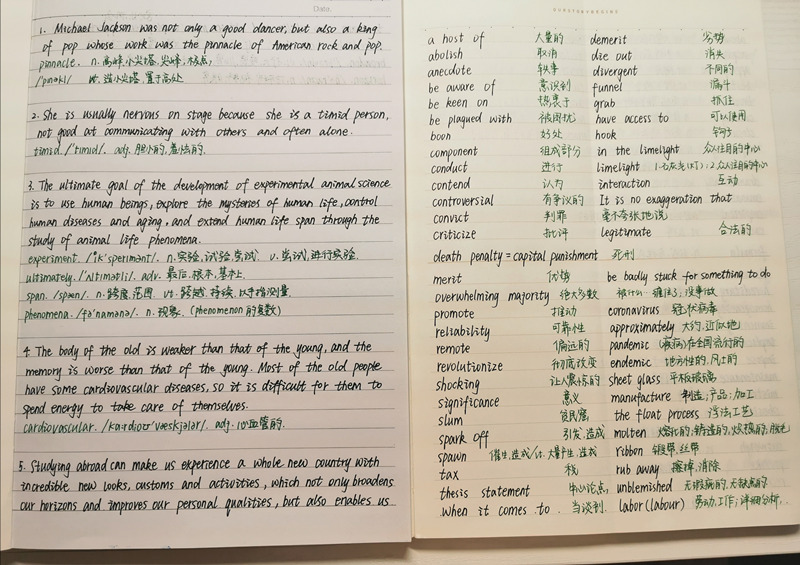 Date.
1. Michael Jackson was not only a good dancer, but also a king
of pop whose work was the pinnacle of American rock and pop.
pinnacle. n. 高峰,小尖塔,尖峰,极点,
/'pɪnəkl/ vt. 造小尖塔,置于高处
2. She is usually nervous on stage because she is a timid person,
not good at communicating with others and often alone.
timid. /'tɪmɪd/. adj. 胆小的,羞怯的.
3. The ultimate goal of the development of experimental animal science
is to use human beings, explore the mysteries of human life, control
human diseases and aging, and extend human life span through the
study of animal life phenomena.
experiment. /ɪk'sperɪmənt/. n. 实验,试验,尝试. v. 尝试,进行实验.
ultimately. /'ʌltɪmətli/. adv. 最后,根本,基本上.
span. /spæn/. n. 跨度,范围. vt. 跨越,持续,以手指测量.
phenomena. /fə'nɒmɪnə/. n. 现象. (phenomenon 的复数)
4 The body of the old is weaker than that of the young, and the
memory is worse than that of the young. Most of the old people
have some cardiovascular diseases, so it is difficult for them to
spend energy to take care of themselves.
cardiovascular. /ˌkɑːrdioʊ'væskjələr/. adj. 心血管的.
5. Studying abroad can make us experience a whole new country with
incredible new looks, customs and activities, which not only broadens
our horizons and improves our personal qualities, but also enables us
a host of 大量的
abolish 取消
anecdote 轶事
be aware of 意识到
be keen on 热衷于
be plagued with 被困扰
boon 好处
component 组成部分
conduct 进行
contend 认为
controversial 有争议的
convict 判罪
criticize 批评
demerit 劣势
die out 消失
divergent 不同的
funnel 漏斗
grab 抓住
have access to 可以使用
hook 钩子
in the limelight 众人注目的中心
limelight 1.石灰光(灯); 2.众人注目的中心
interaction 互动
It is no exaggeration that
毫不夸张地说
legitimate 合法的
death penalty = capital punishment 死刑
merit 优势
overwhelming majority 绝大多数
promote 推动
reliability 可靠性
remote 偏远的
revolutionize 彻底改变
shocking 让人震惊的
significance 意义
slum 贫民窟
spark off 引发,造成
spawn 催生,造成/vt. 大量产生,造成
tax 税
thesis statement 中心论点,
when it comes to 当谈到.
be badly stuck for something to do
coronavirus 冠状病毒
approximately 大约,近似地
pandemic (疾病)在全国流行的
endemic 地方性的,风土的
sheet glass 平板玻璃
manufacture 制造;产品;加工
the float process 浮法工艺
molten 熔化的,铸造的,炽热的,
ribbon 缎带,丝带
rub away 擦掉,消除
unblemished 无瑕疵的,无缺点的
labor (labour) 劳动,工作;详细分析.